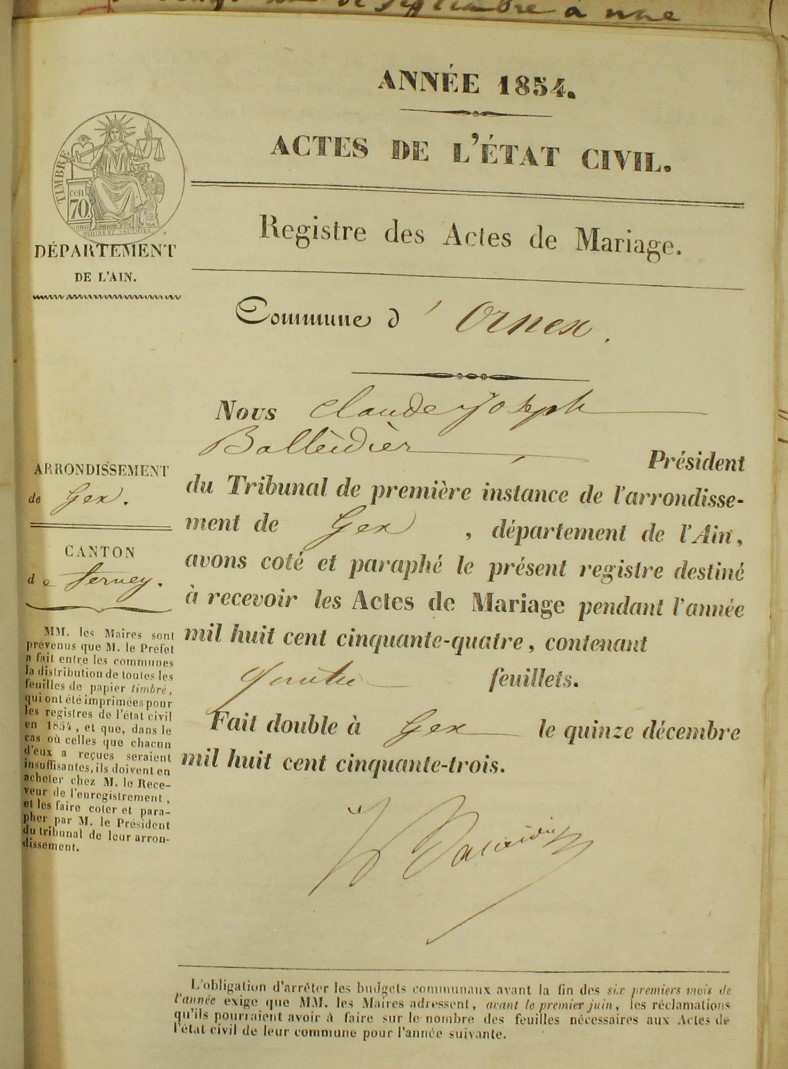 de septembre à une
ANNÉE 1854.
ACTES DE L'ÉTAT CIVIL.
TIMBRE
cen
70
DÉPARTEMENT
DE L'AIN.
Registre des Actes de Mariage.
Commune d'Ornex.
Nous Claude Joseph
Balleidier Président
du Tribunal de première instance de l'arrondisse-
ment de Gex, département de l'Ain,
avons coté et paraphé le présent registre destiné
à recevoir les Actes de Mariage pendant l'année
mil huit cent cinquante-quatre, contenant
feuillets.
Fait double à Gex le quinze décembre
mil huit cent cinquante-trois.
ARRONDISSEMENT
de Gex.
CANTON
de Ferney.
MM. les Maires sont
prévenus que M. le Préfet
a fait entre les communes
la distribution de toutes les
feuilles de papier timbré,
qui ont été imprimées pour
les registres de l'état civil
en 1854, et que, dans le
cas où celles que chacun
d'eux a reçues seraient
insuffisantes, ils doivent en
acheter chez M. le Rece-
veur de l'enregistrement,
et les faire coter et para-
pher par M. le Président
du tribunal de leur arron-
dissement.
L'obligation d'arrêter les budgets communaux avant la fin des six premiers mois de
l'année exige que MM. les Maires adressent, avant le premier juin, les réclamations
qu'ils pourraient avoir à faire sur le nombre des feuilles nécessaires aux Actes de
l'état civil de leur commune pour l'année suivante.